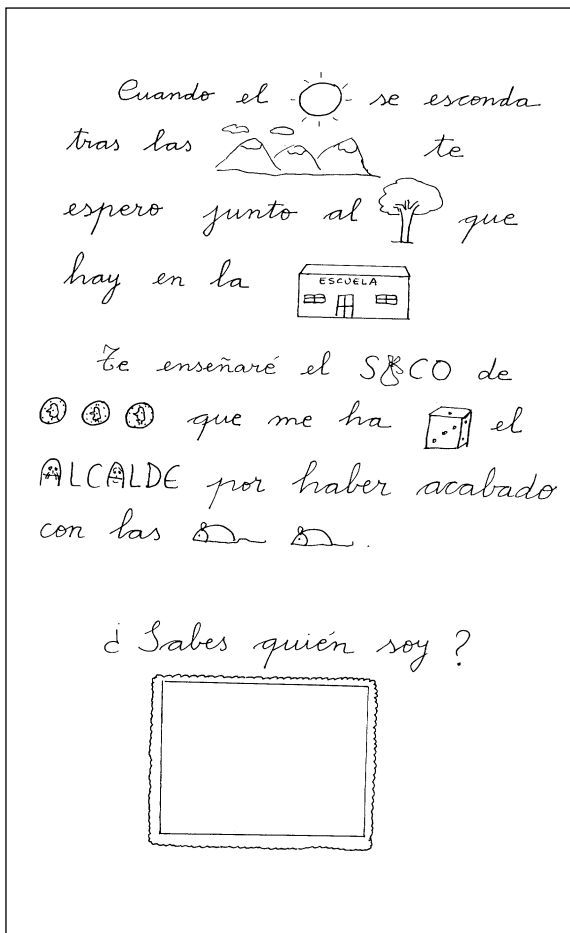 Cuando el se esconda
tras las te
espero junto al que
hay en la ESCUELA
Te enseñaré el SACO de
que me ha el
ALCALDE por haber acabado
con las .
¿Sabes quién soy?